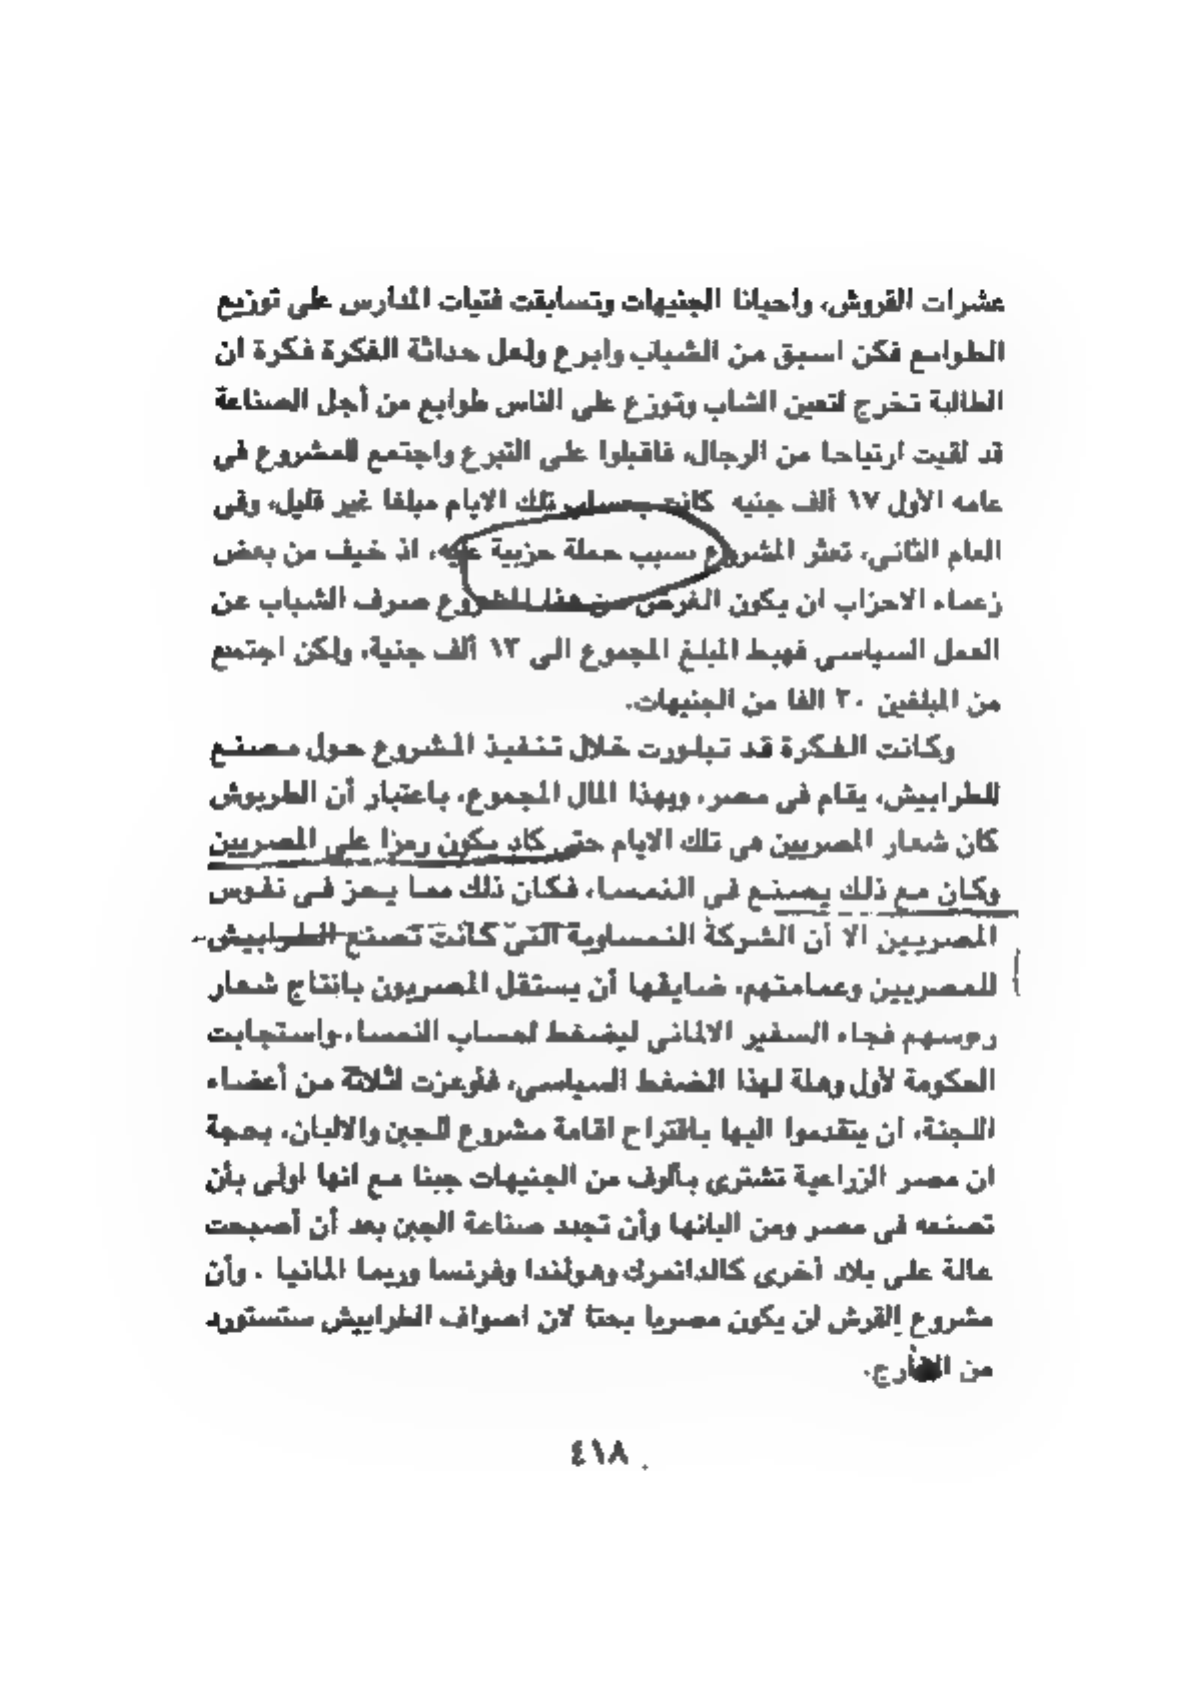 عشرات القروش، واحيانا الجنيهات وتسابقت فتيات المدارس على توزيع
الطوابع فكن اسبق من الشباب وابرع ولعل حداثة الفكرة فكرة ان
الطالبة تخرج لتعين الشاب وتوزع على الناس طوابع من أجل الصناعة
قد لقيت ارتياحا من الرجال، فاقبلوا على التبرع واجتمع للمشروع فى
عامه الأول ١٧ ألف جنيه كانت بحساب تلك الايام مبلغا غير قليل، وفى
العام الثانى، تعثر المشروع بسبب حملة حزبية عليه، اذ خيف من بعض
زعماء الاحزاب ان يكون الغرض من هذا المشروع صرف الشباب عن
العمل السياسى فهبط المبلغ المجموع الى ١٣ ألف جنية، ولكن اجتمع
من المبلغين ٣٠ الفا من الجنيهات.
وكانت الفكرة قد تبلورت خلال تنفيذ المشروع حول مصنع
للطرابيش، يقام فى مصر، وبهذا المال المجموع، باعتبار أن الطربوش
كان شعار المصريين فى تلك الايام حتى كاد يكون رمزا على المصريين
وكان مع ذلك يصنع فى النمسا، فكان ذلك مما يحز فى نفوس
المصريين الا أن الشركة النمساوية التى كانت تصنع الطرابيش
للمصريين وعمامتهم، ضايقها أن يستقل المصريون بانتاج شعار
رءوسهم فجاء السفير الالمانى ليضغط لحساب النمسا، واستجابت
الحكومة لأول وهلة لهذا الضغط السياسى، فأوعزت لثلاثة من أعضاء
اللجنة، ان يتقدموا اليها باقتراح اقامة مشروع للجبن والالبان، بحجة
ان مصر الزراعية تشترى بألوف من الجنيهات جبنا مع انها اولى بأن
تصنعه فى مصر ومن البانها وأن تجيد صناعة الجبن بعد أن أصبحت
عالة على بلاد أخرى كالدانمرك وهولندا وفرنسا وربما المانيا . وأن
مشروع القرش لن يكون مصريا بحتا لان اصواف الطرابيش ستستورد
من الخارج.
٤١٨